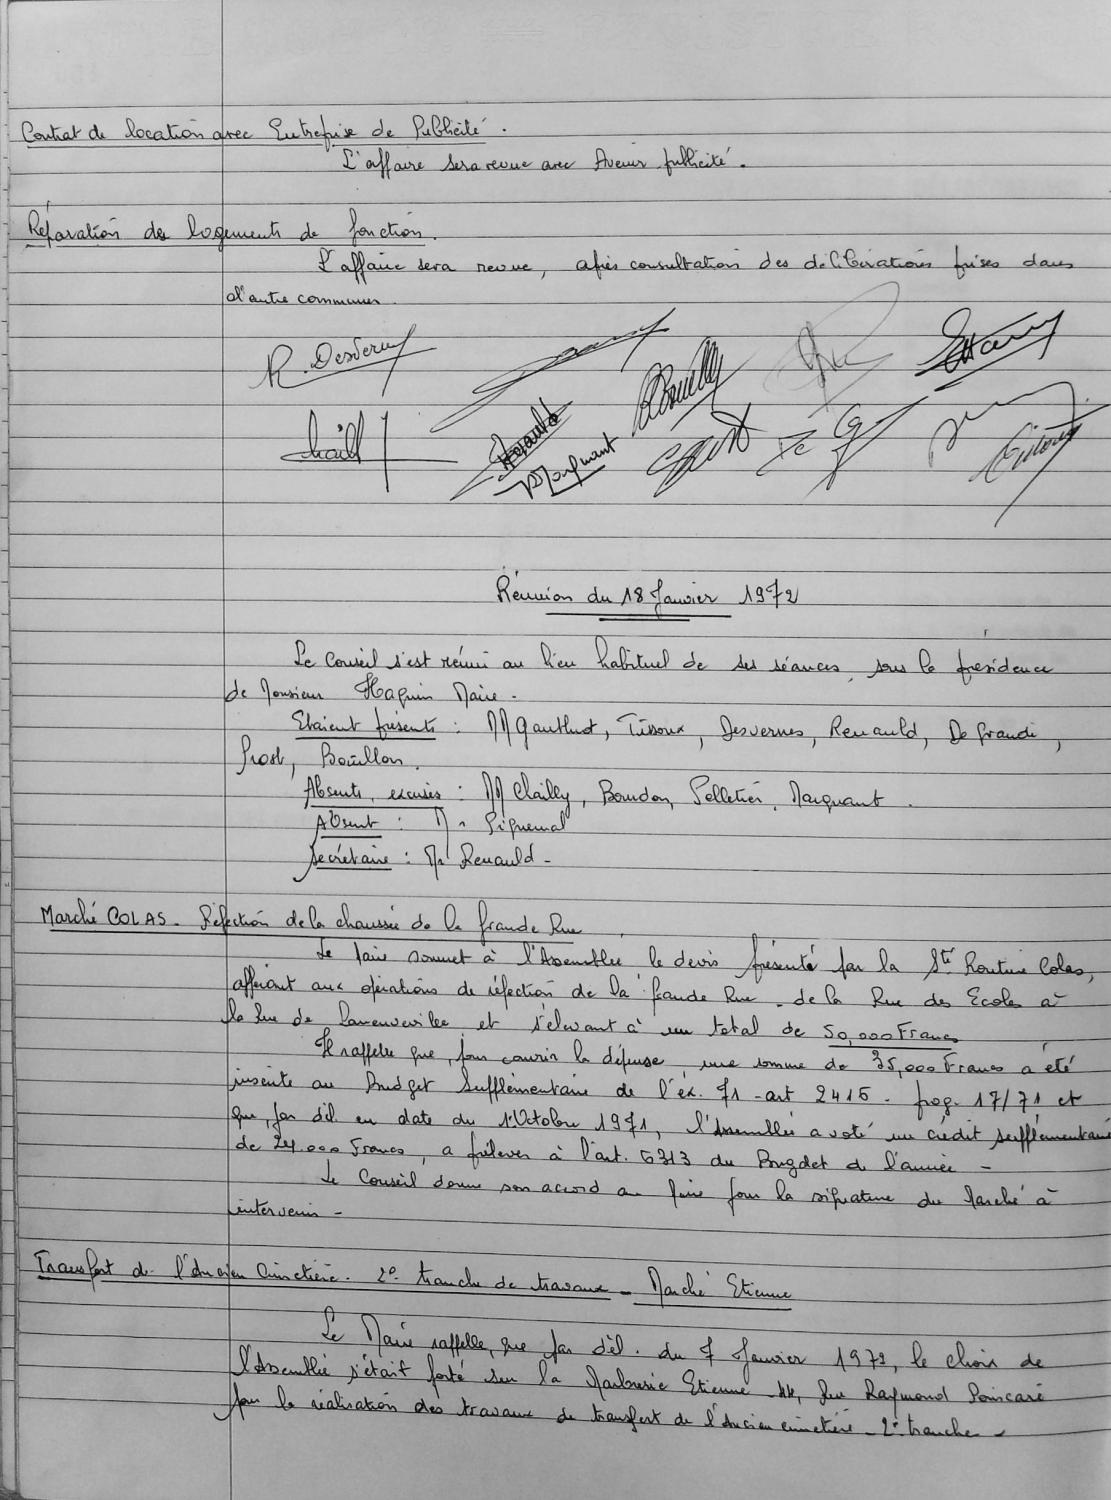 Contrat de location avec Entreprise de Publicité.
L'affaire sera revue avec Avenir publicité.
Réparation des logements de fonction.
L'affaire sera revue, après consultation des délibérations prises dans
d'autre communes.
R. Desvernes
Chailly
Renauld
Marquant
Réunion du 18 Janvier 1972
Le Conseil s'est réuni au lieu habituel de ses séances, sous la présidence
de Monsieur Haquin Maire.
Etaient présents : MM Gauthrot, Tissoux, Desvernes, Renauld, De Grandi,
Prost, Bouillon.
Absents, excusés : MM Chailly, Bourdon, Pelletier, Marquant.
Absent : Mr Piquemal
Secrétaire : Mr Renauld -
Marché COLAS - Réfection de la chaussée de la Grande Rue
Le Maire soumet à l'Assemblée le devis présenté par la Sté Routière Colas,
afférant aux opérations de réfection de la Grande Rue - de la Rue des Ecoles à
la Rue de Laneuveville et s'élevant à un total de 50,000 Francs
Il rappelle que, pour couvrir la dépense, une somme de 35,000 Francs a été
inscrite au Budget Supplémentaire de l'ex. 71 - art 2415 - prog. 17/71 et
que, par dél. en date du 1. Octobre 1971, l'Assemblée a voté un crédit supplémentaire
de 24.000 Francs, a prélever à l'art. 6313 du Bugdet de l'année -
Le Conseil donne son accord au Maire pour la signature du Marché à
intervenir -
Transfert de l'Ancien Cimetière. 2° tranche de travaux - Marché Etienne
Le Maire rappelle, que par dél. du 7 Janvier 1972, le choix de
l'Assemblée s'était porté sur la Marbrerie Etienne 44, Rue Raymond Poincaré
pour la réalisation des travaux de transfert de l'Ancien cimetière - 2° tranche -